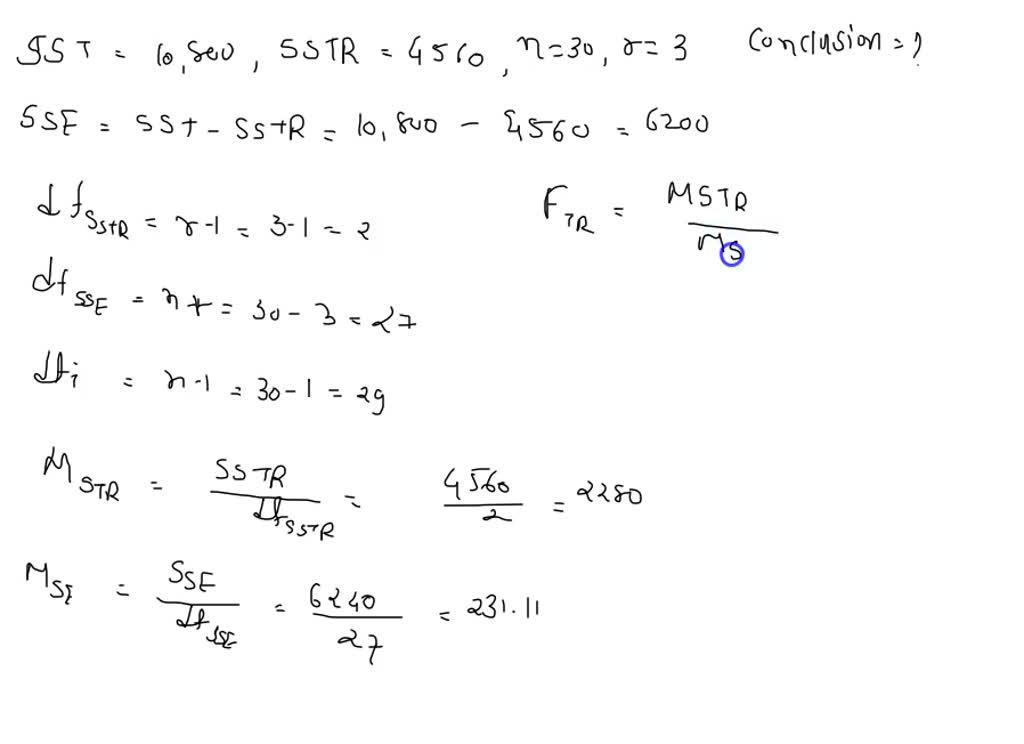 SST = 10,800, SSTR = 4560, n=30, r=3 Conclusion = ?
SSE = SST - SSTR = 10,800 - 4560 = 6200
df SSTR = r-1 = 3-1 = 2
F TR = MSTR / MS
df SSE = n r = 30 - 3 = 27
df i = n-1 = 30-1 = 29
M STR = SSTR / df SSTR = 4560 / 2 = 2280
M SE = SSE / df SSE = 6240 / 27 = 231.11